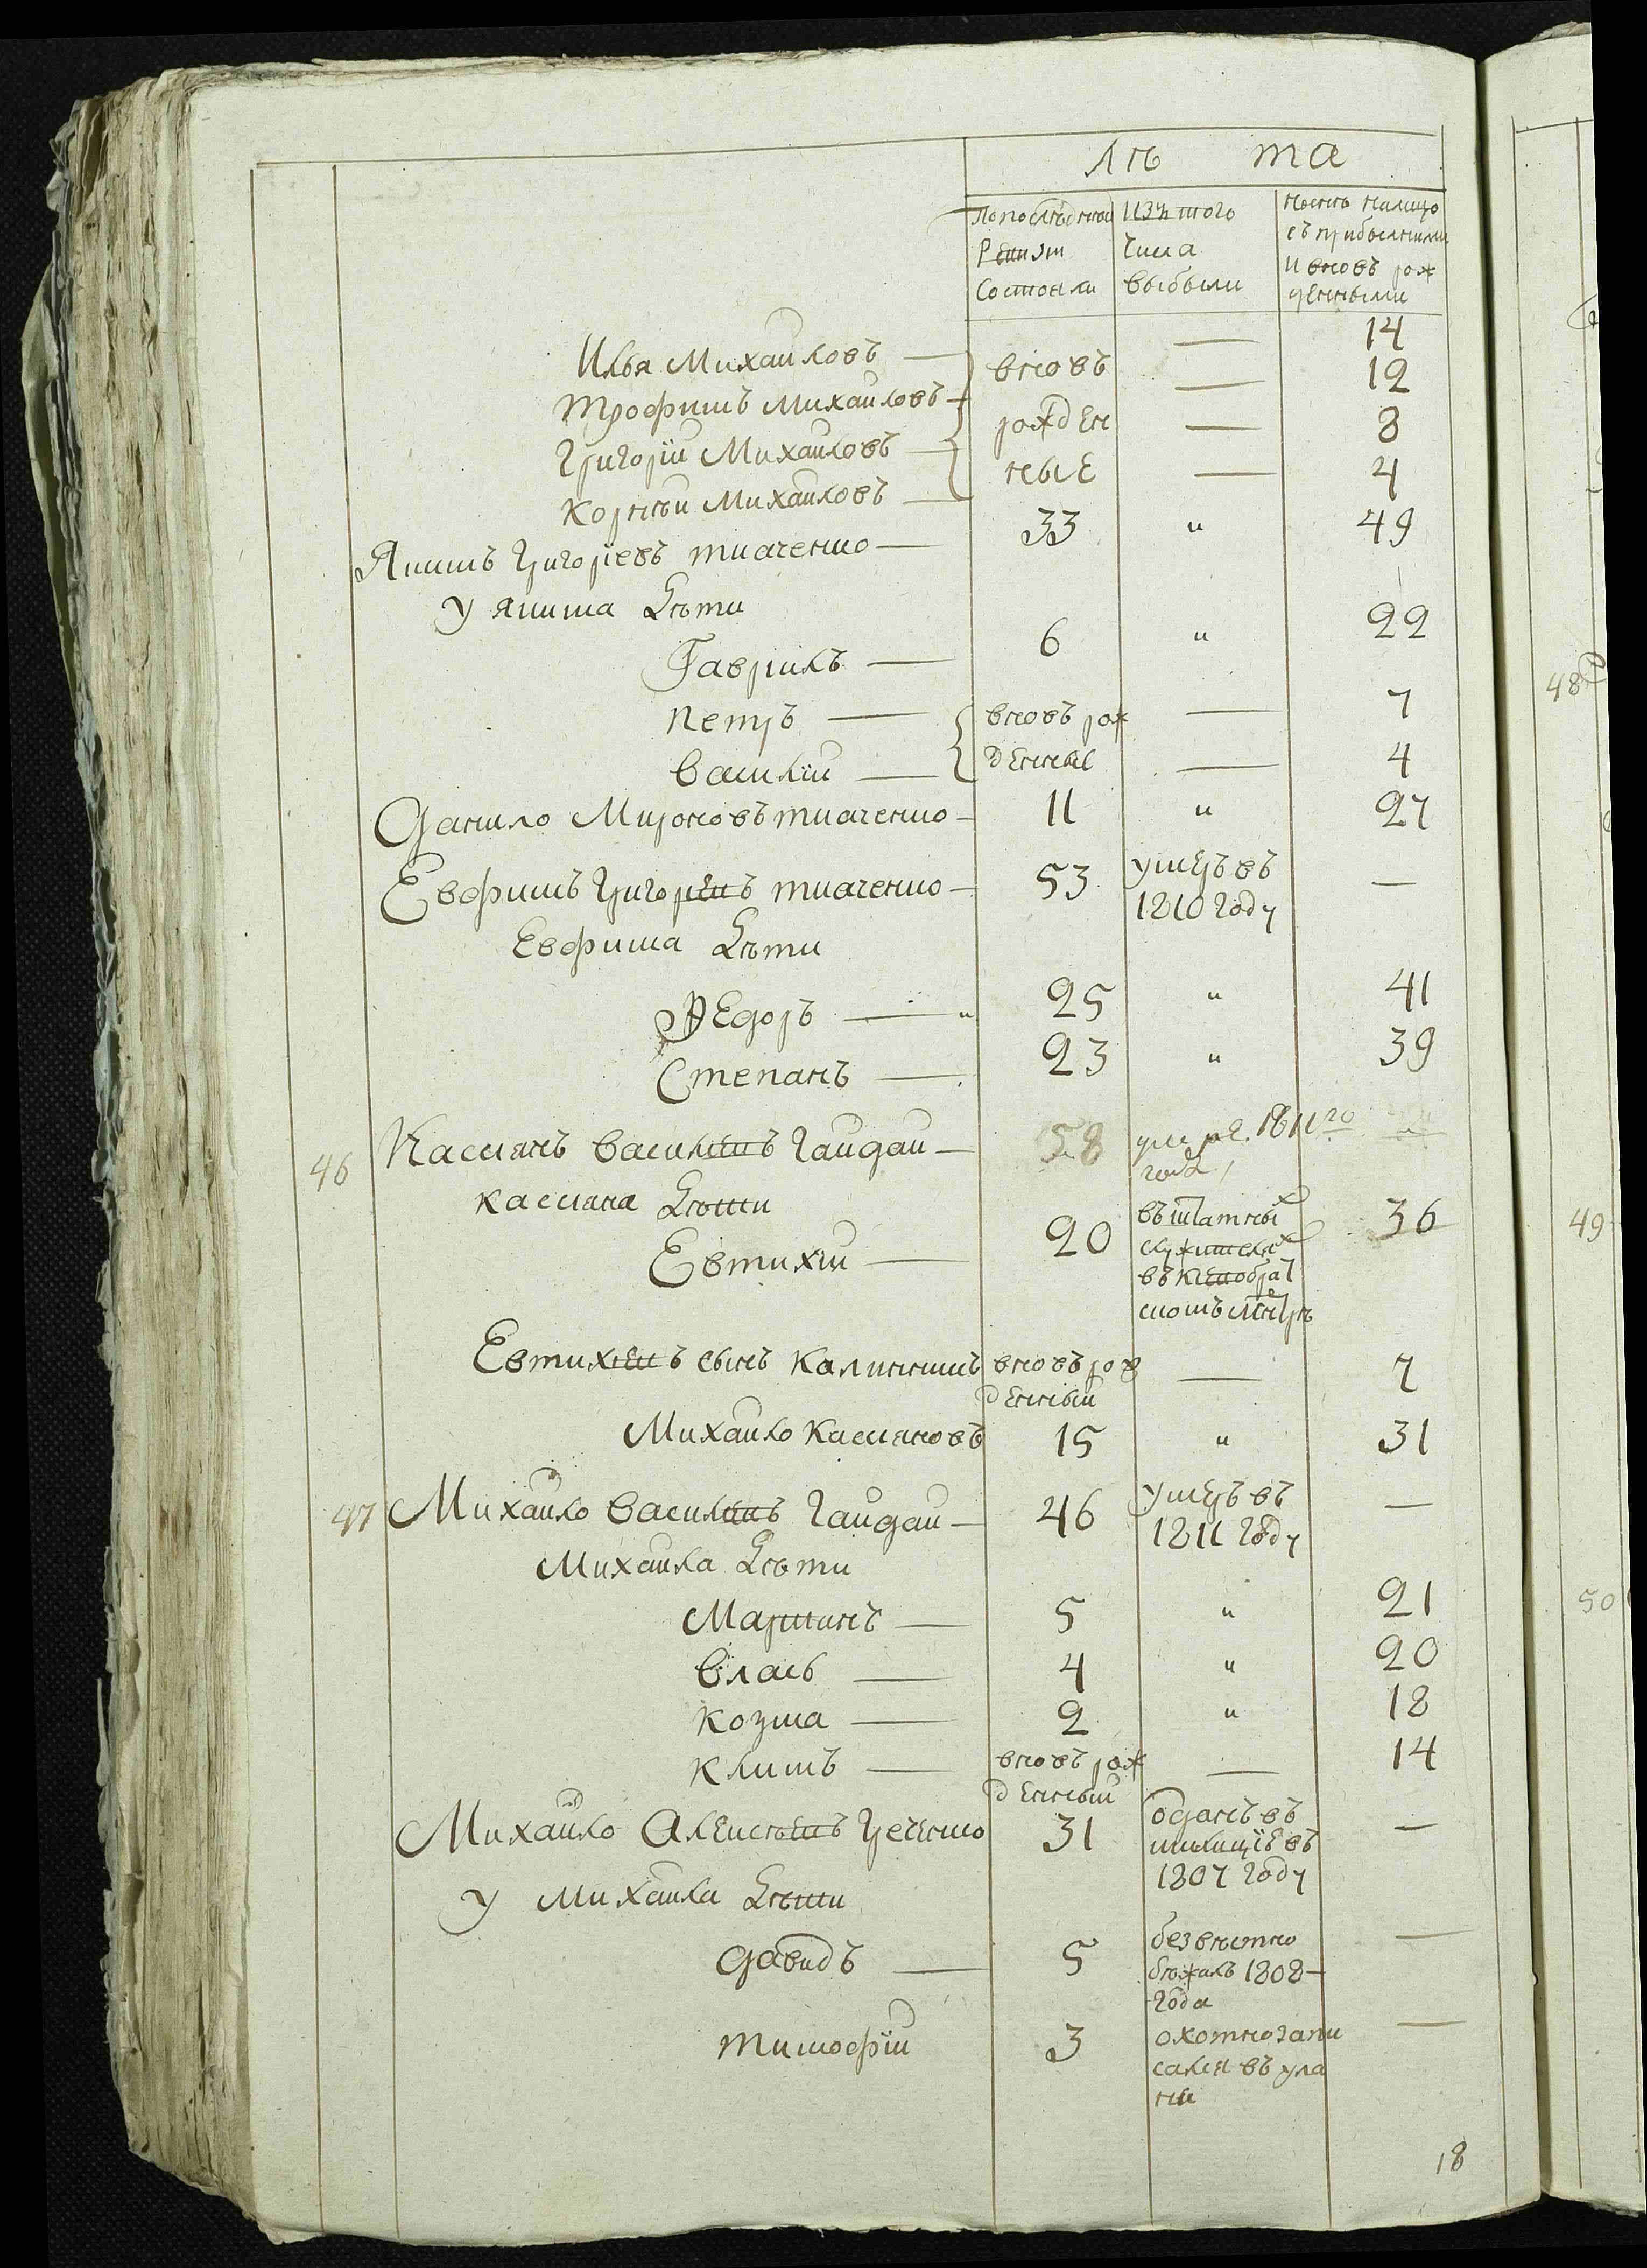 лѣта
По последней Ревизіи Состояли
Изъ того Числа выбыли
ныне налицо съ прибылыми и вновь рожденными
Илья Михаиловъ — вновь — 14
Трофимъ Михаиловъ — рожден — 12
Григорій Михаиловъ — ные — 8
Корнѣй Михаиловъ — 4
Якимъ Григоріевъ Ткаченко — 33 " 49
у Якима Дѣти
Гаврилъ — 6 " 22
Петръ — вновь рож — 7
Василій — денные — 4
Данило Мироновъ Ткаченко — 11 " 27
Евфимъ Григорьевъ Ткаченко — 53 умеръ въ —
1810 году
Евфима Дѣти
Федоръ — 25 " 41
Степанъ — 23 " 39
46 Касиянъ Васильевъ Гайдай — 58 1811го
года
касияна Дѣти
Евтихій — 20 въ штатных 36
служителях
въ
скомъ мнтрѣ
Евтихіевъ сынъ Калинникъ вновь рож — 7
денный
Михайло Касияновъ 15 " 31
47 Михайло Васильевъ Гайдай — 46 умеръ въ —
1811 году
Михайла Дѣти
Мартинъ — 5 " 21
Власъ — 4 " 20
Козма — 2 " 18
Климъ — вновь рож — 14
денный
Михайло Алексѣевъ Греченко 31 одданъ въ —
милицію въ
1807 году
у Михайла Дѣти
Давидъ — 5 безвѣстно —
бѣжалъ 1808
года
Тимофій 3 охотно запи —
сался въ ула
ны
18
48
49
50